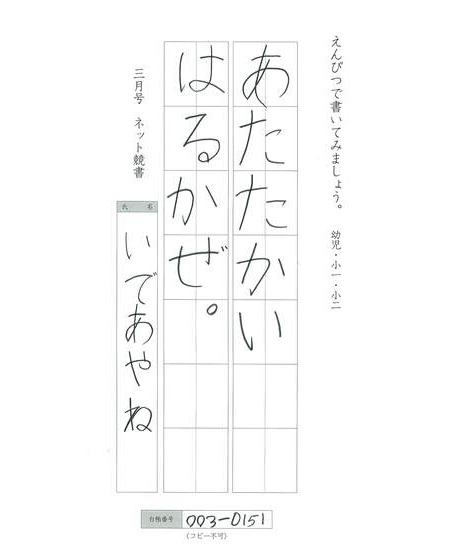 えんぴつで書いてみましょう。 幼児・小一・小二
あたたかい
はるかぜ。
三月号 ネット競書
氏名
いであやね
台帳番号 003-0151
(コピー不可)